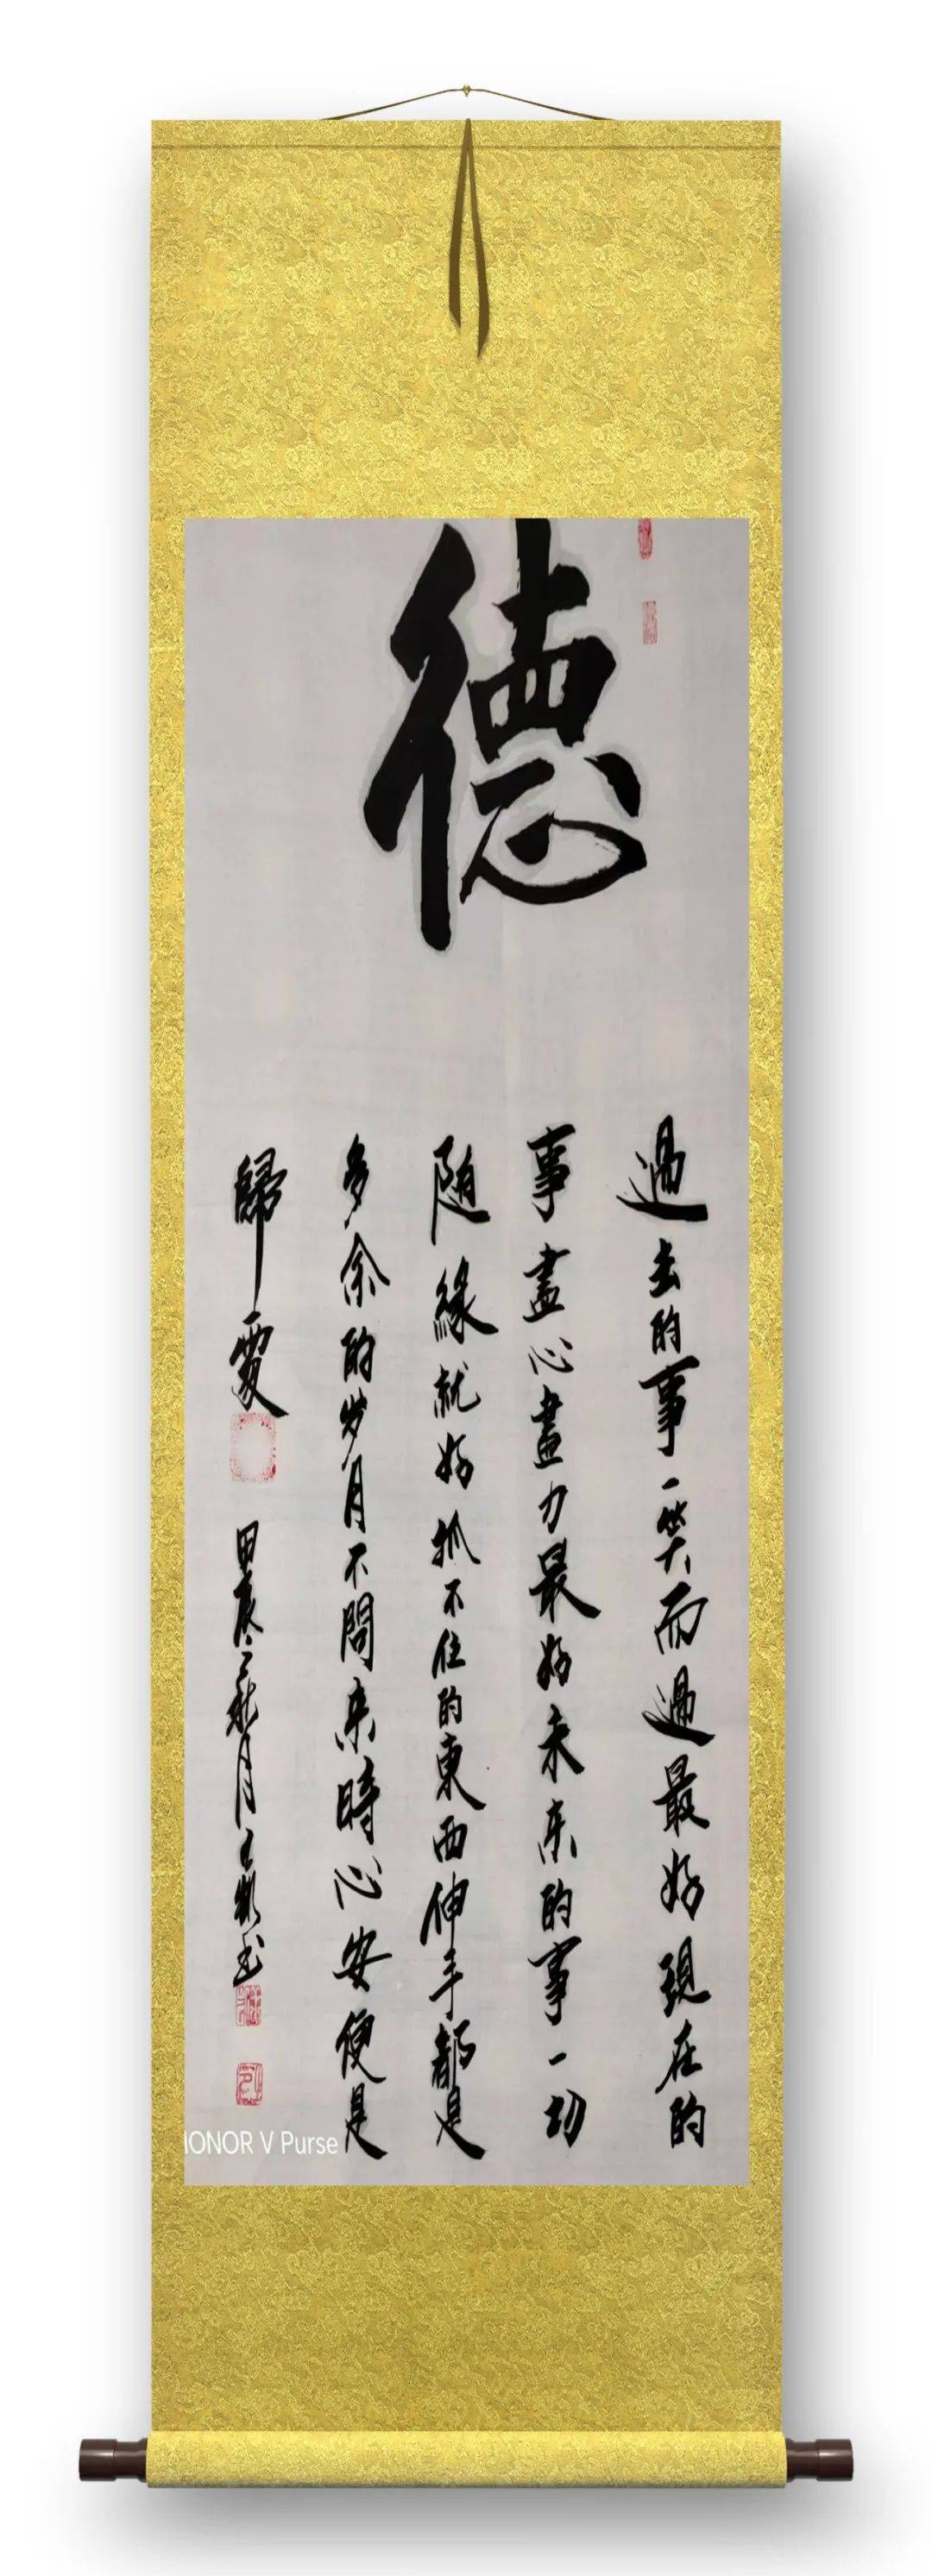 德
過去的事一笑而過最好現在的
事盡心盡力最好未来的事一切
随緣就好抓不住的東西伸手都是
多余的岁月不問来時心安便是
歸處
甲辰之秋月王
HONOR V Purse